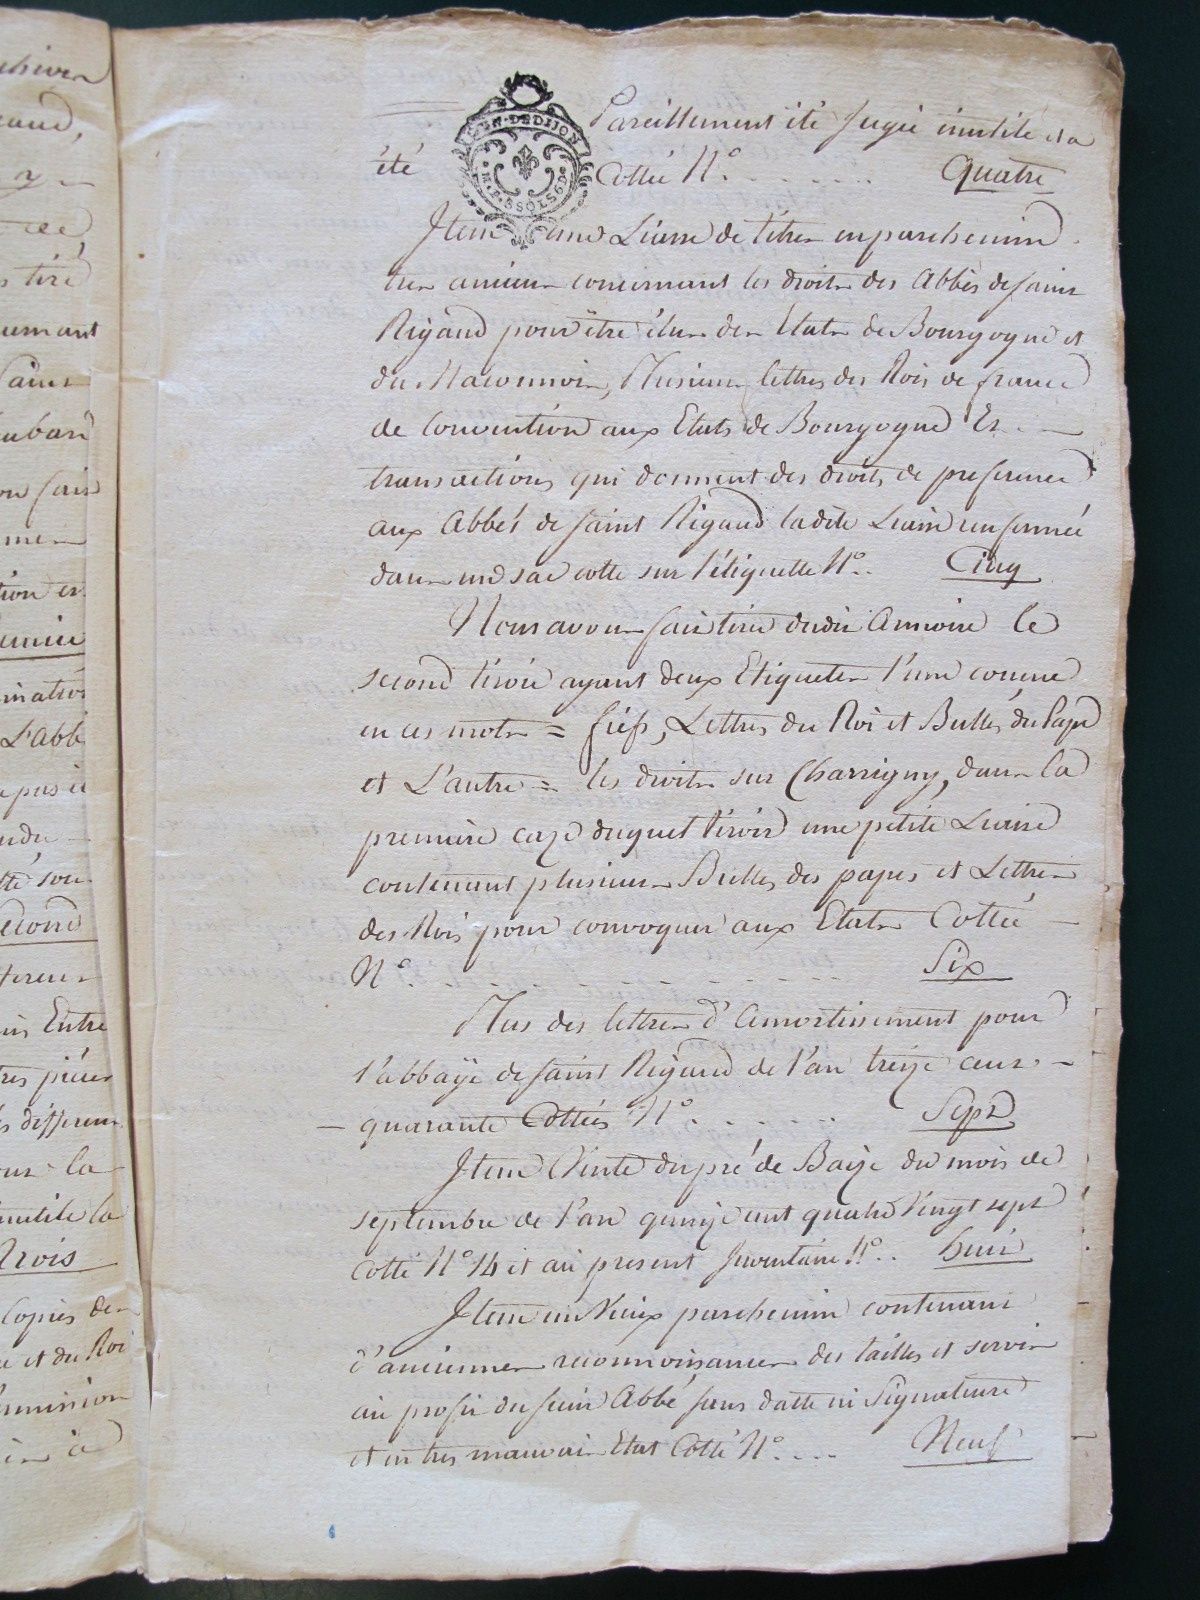 Pareillement été jugée inutile et a
été Cottée N.º . . . . . . . Quatre
GEN. DE DIJON
M.P. 8 SOLS 6 D.
Item une Liasse de titres en parchemin
tres anciens concernant les droits des Abbés de saint
Rigaud pour être élus des Etats de Bourgogne et
du Maconnois, Plusieurs lettres des Rois de france
de Convention aux Etats de Bourgogne Et
transactions qui donnent des droits de preference
aux Abbés de saint Rigaud ladite Liasse enfermée
dans un sac cotte sur l'étiquette N.º . Cinq
Nous avons fait tirer dudit Armoire le
second tiroir ayant deux Etiquettes l'une conçue
en ces mots = fiefs, Lettres du Roi et Bulles du Pape
et L'autre = les droits sur Charrigny, dans la
premiere caze duquel tiroir une petite Liasse
contenant plusieurs Bulles des papes et Lettres
des Rois pour convoquer aux Etats Cottée
N.º . . . . . . . . . Six
Plus des lettres d'amortissement pour
l'abbaÿe de saint Rigaud de l'an treize cens
quarante Cottées N.º . . . . . . Sept
Item Vente du pré de Baize du mois de
septembre de l'an quinze cent quatre Vingt sept
Cotté N.º 14 et au present Inventaire N.º . . huit
Item un Vieux parchemin contenant
d'anciennes reconnoissances des tailles et servis
au profit du sieur Abbé, sans datte ni Signature
et en tres mauvais Etat Cotté N.º . . . . Neuf
chives
tiré
saint
tion et
L'abbé
pas été
second
Entre
tres piéces
differens
pour la
inutile la
Trois
Copies des
et du Roi